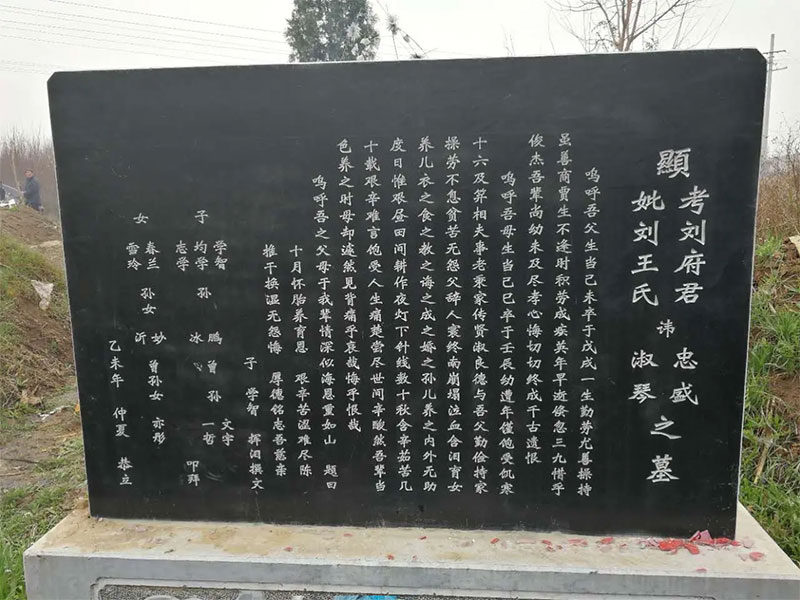 顯考刘府君讳忠盛
妣刘王氏淑琴之墓
呜呼吾父生当己未卒于戊戌一生勤劳尤善操持
虽善商贾生不逢时积劳成疾英年早逝倏忽三九惜乎
俊杰吾辈尚幼未及尽孝心悔切切终成千古遗恨
呜呼吾母生当己巳卒于壬辰幼遭年馑饱受饥寒
十六及笄相夫事老秉家传贤淑良德与吾父勤俭持家
操劳不息贫苦无怨父辞人寰终南崩塌泣血含泪育女
养儿衣之食之教之诲之成之婚之孙儿养之内外无助
度日惟艰昼田间耕作夜灯下针线数十秋含辛茹苦几
十载艰辛难言饱受人生痛楚尝尽世间辛酸然吾辈当
色养之时母却遽然见背痛乎哀哉悔乎恨哉
呜呼吾之父母于我辈情深似海恩重如山 题曰
十月怀胎养育恩 艰辛苦温难尽陈
推干换湿无怨悔 厚德铭志吾慈亲
子 学智 挥泪撰文
学智 鹏 文宇
子 均学 孙 曾孙 叩拜
志学 冰 一哲
女 春兰 孙女 妙 曾孙女 亦彤
雪玲 沂
乙未年 仲夏 恭立